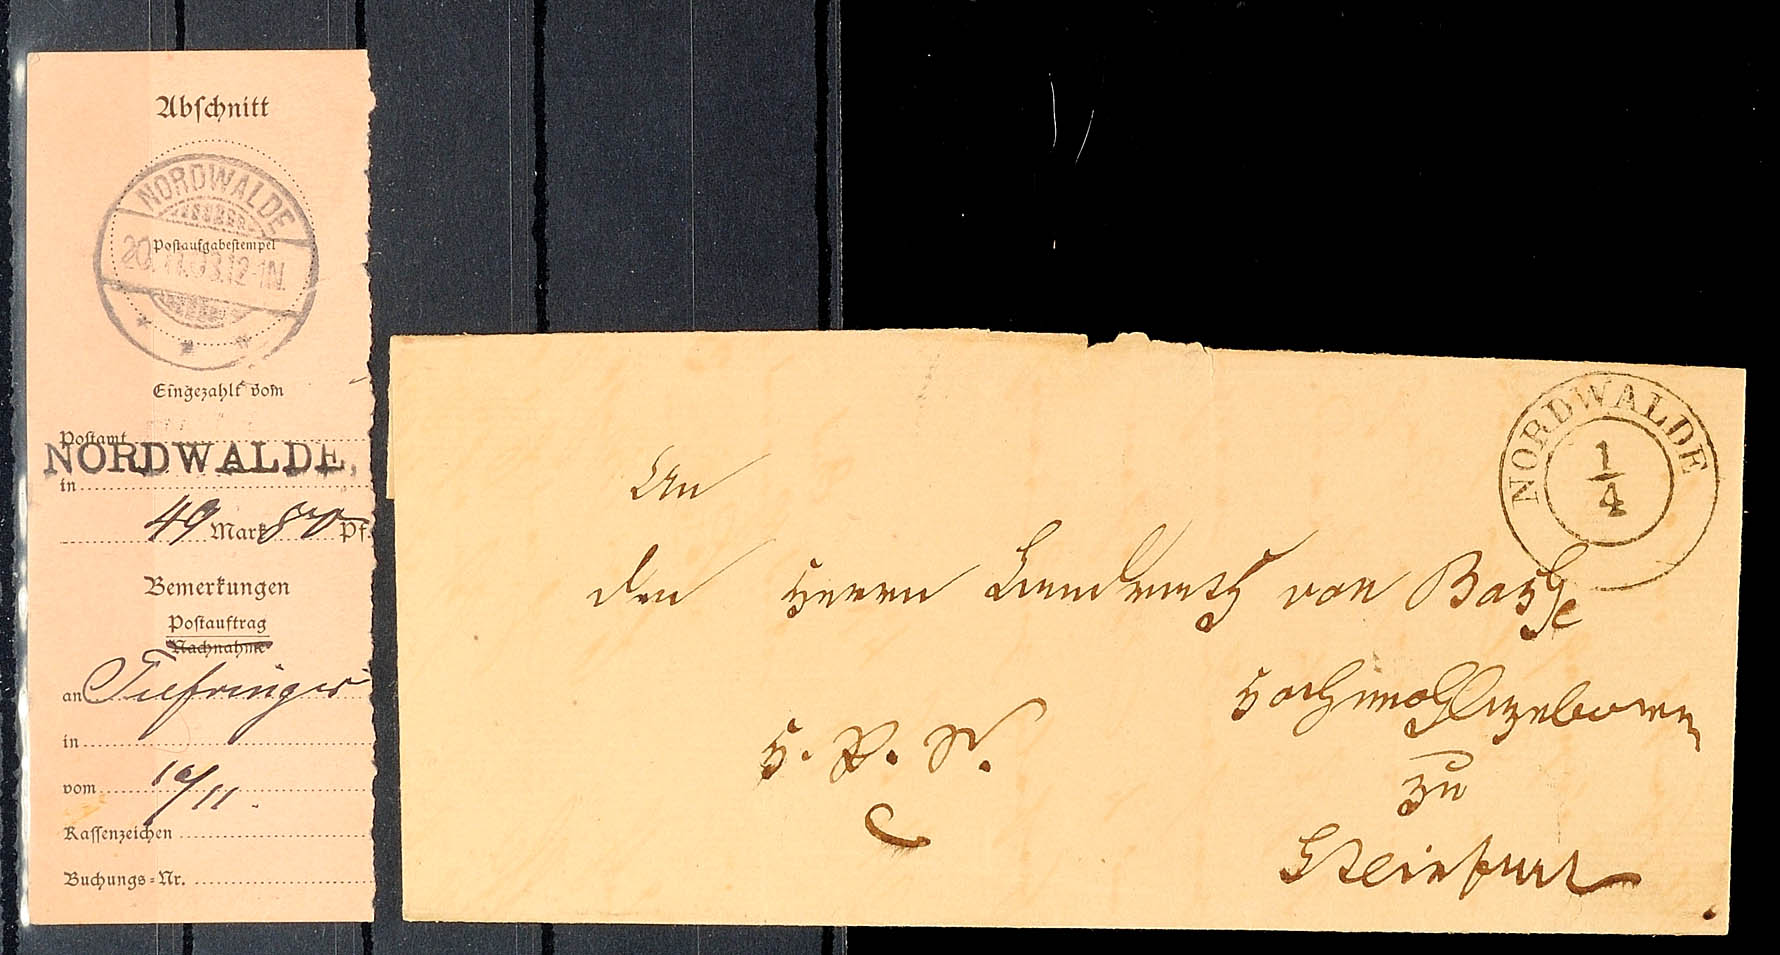 Abschnitt
NORDWALDE
Postaufgabestempel
20.11.03.12-1N.
Eingezahlt vom
Postamt
NORDWALDE,
in
49 Mark 80 Pf.
Bemerkungen
Postauftrag
Nachnahme
an
in
vom 10/11.
Kassenzeichen
Buchungs=Nr.
NORDWALDE
1
4
An
den Herrn Landrath von Basse
Hochwohlgeboren
H. R. S.
zu
Steinfurt